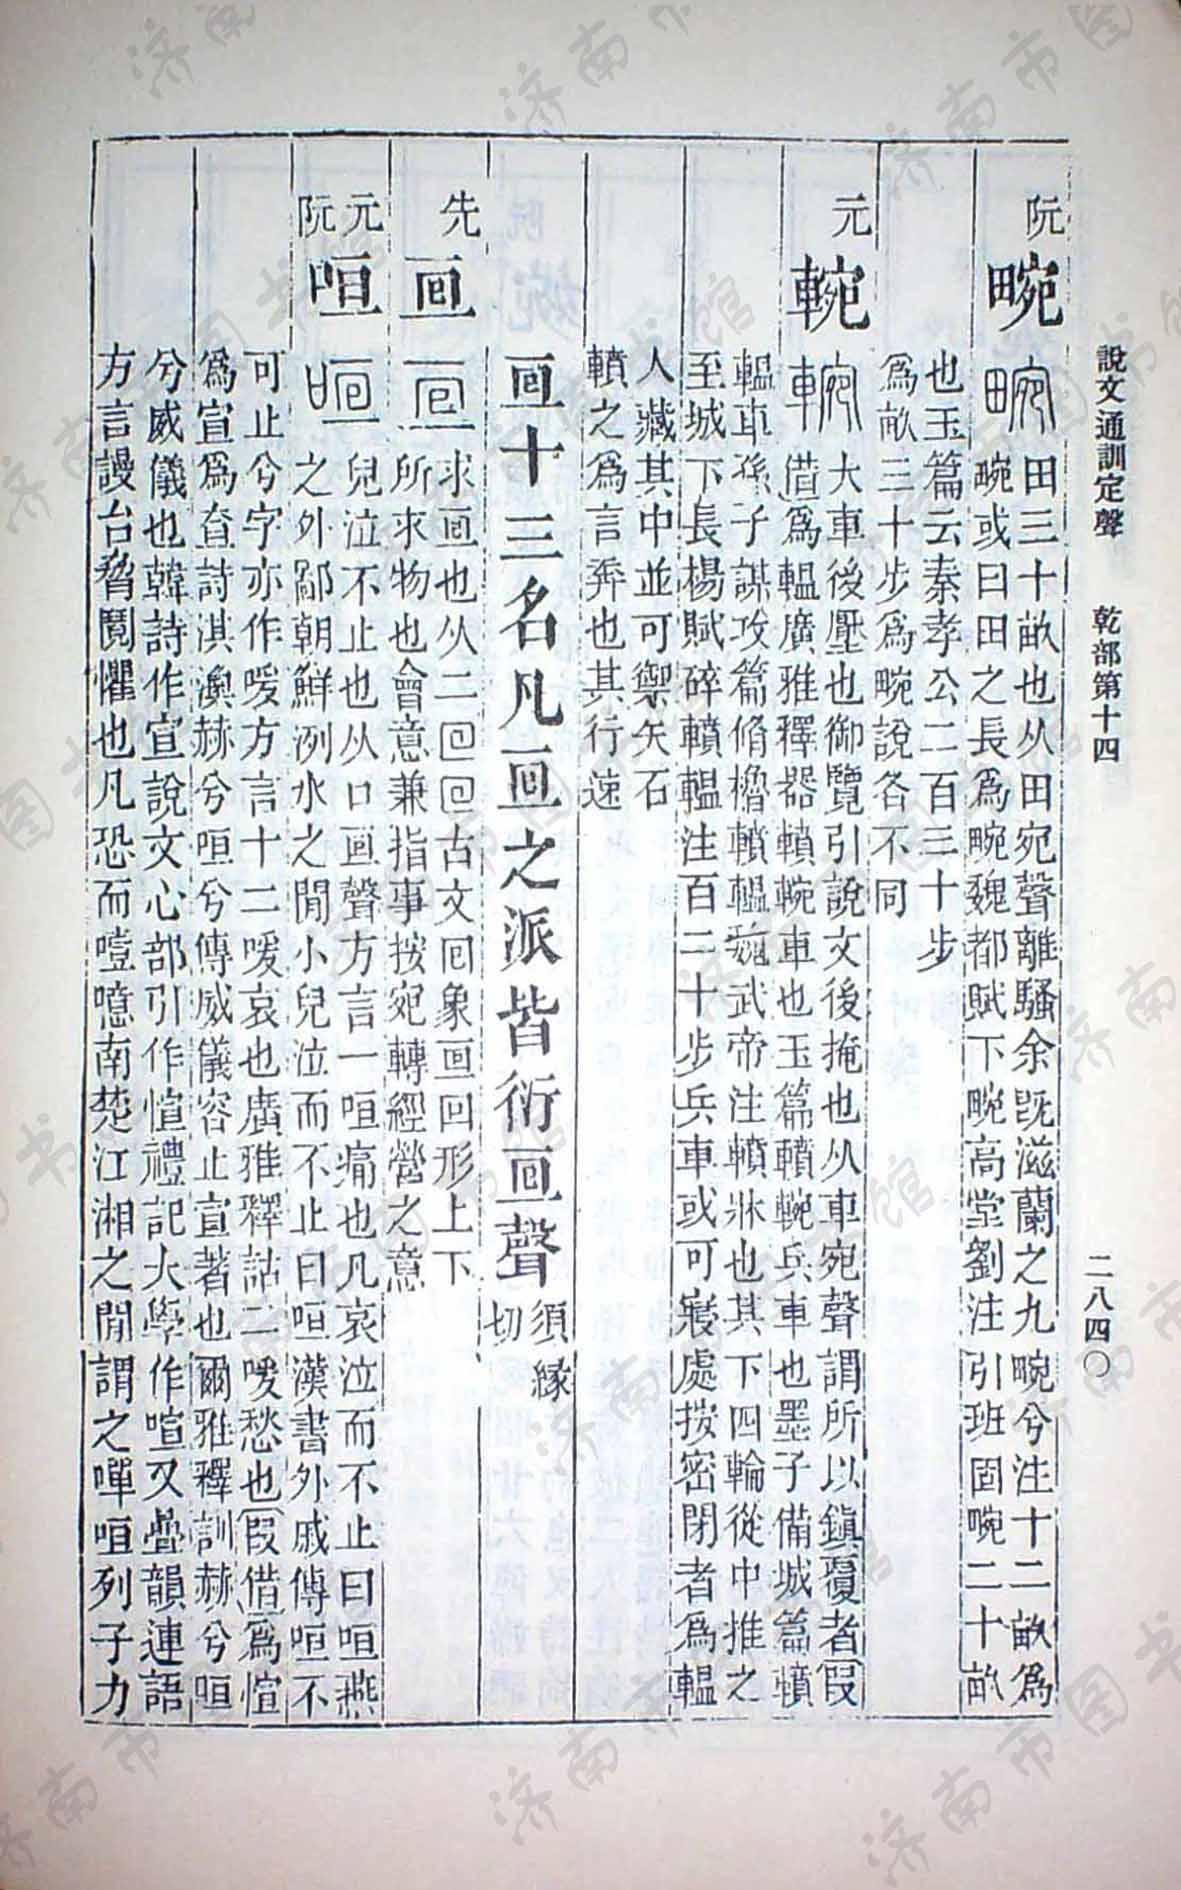 說文通訓定聲 乾部第十四 二八四〇
阮 畹
田三十畝也从田宛聲離騷余既滋蘭之九畹兮注十二畝爲
畹或曰田之長爲畹魏都賦下畹高堂劉注引班固畹二十畝
也玉篇云秦孝公二百三十步
爲畝三十步爲畹說各不同
元 䡝
大車後壓也御覽引說文後掩也从車宛聲謂所以鎮覆者叚
借爲轀廣雅釋器轒䡝車也玉篇轒䡝兵車也墨子備城篇轒
轀車孫子謀攻篇脩櫓轒轀魏武帝注轒牀也其下四輪從中推之
至城下長楊賦碎轒轀注百二十步兵車或可寢處按密閉者爲轀
人藏其中並可禦矢石
轒之爲言奔也其行速
亘十三名凡亘之派皆衍亘聲 須緣
切
先 亘
求亘也从二囘囘古文回象亘回形上下
所求物也會意兼指事按宛轉經營之意
元 阮 咺
兒泣不止也从口亘聲方言一咺痛也凡哀泣而不止曰咺燕
之外鄙朝鮮洌水之閒小兒泣而不止曰咺漢書外戚傳咺不
可止兮字亦作喛方言十二喛哀也廣雅釋詁二喛愁也叚借爲愃
爲宣爲查詩淇澳赫兮咺兮傳威儀容止宣著也爾雅釋訓赫兮咺
兮威儀也韓詩作宣說文心部引作愃禮記大學作喧又疊韻連語
方言謾台脅鬩懼也凡恐而噎噫南楚江湘之閒謂之嘽咺列子力